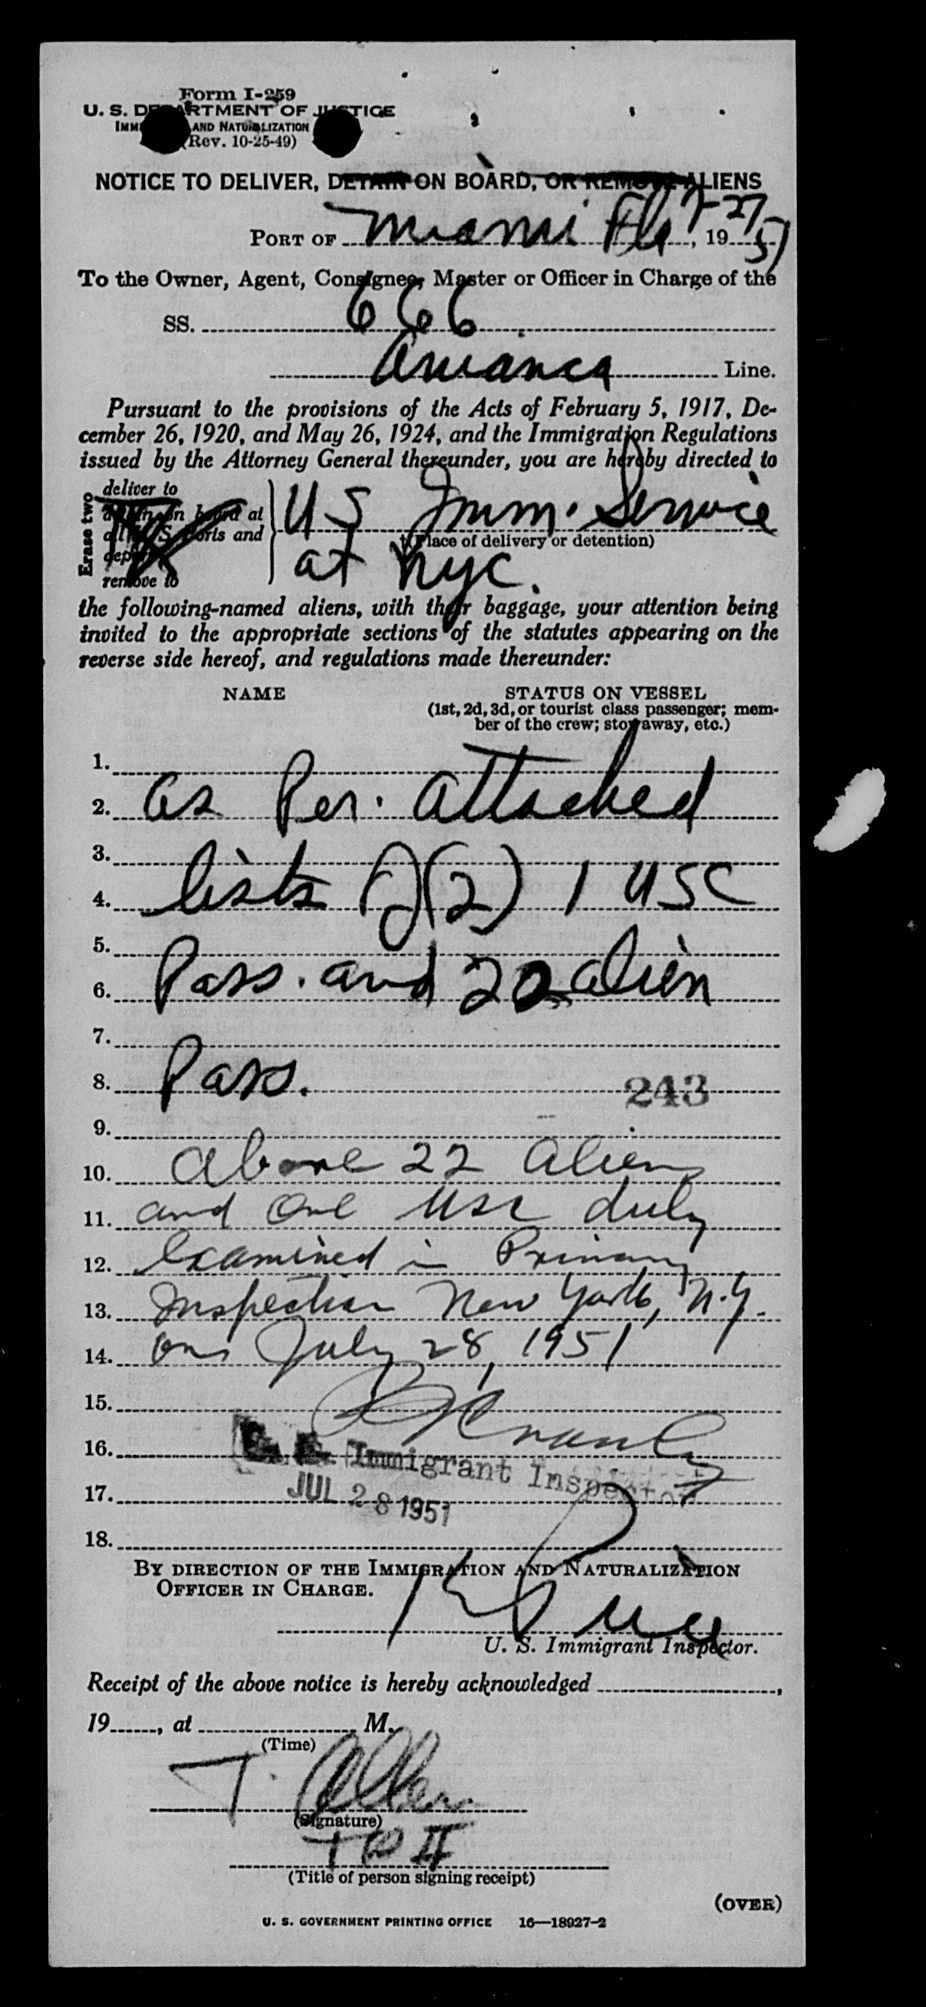 Form I-259
U. S. DEPARTMENT OF JUSTICE
IMM AND NATURALIZATION
(Rev. 10-25-49)
NOTICE TO DELIVER, DETAIN ON BOARD, OR REMOVE ALIENS
PORT OF Miami Fla 7-27, 1951
To the Owner, Agent, Consignee, Master or Officer in Charge of the
SS. 666
Avianca Line.
Pursuant to the provisions of the Acts of February 5, 1917, De-
cember 26, 1920, and May 26, 1924, and the Immigration Regulations
issued by the Attorney General thereunder, you are hereby directed to
Erase two
deliver to
detain on board at
all U.S. ports and
deport
remove to
US Imm. Service
(Place of delivery or detention)
at nyc.
the following-named aliens, with their baggage, your attention being
invited to the appropriate sections of the statutes appearing on the
reverse side hereof, and regulations made thereunder:
NAME STATUS ON VESSEL
(1st, 2d, 3d, or tourist class passenger; mem-
ber of the crew; stowaway, etc.)
1.
2. as Per. attached
3.
4. lists (2) 1 USC
5.
6. Pass. and 22 alien
7.
8. Pass. 243
9.
10. Above 22 aliens
11. and one USC duly
12. Examined in Primary
13. Inspection New York, N.Y.
14. on July 28, 1951
15.
16. Immigrant Inspector
17. JUL 28 1951
18.
BY DIRECTION OF THE IMMIGRATION AND NATURALIZATION
OFFICER IN CHARGE.
U. S. Immigrant Inspector.
Receipt of the above notice is hereby acknowledged ,
19 , at M.
(Time)
T. Allen
(Signature)
(Title of person signing receipt)
(OVER)
U. S. GOVERNMENT PRINTING OFFICE 16—18927-2